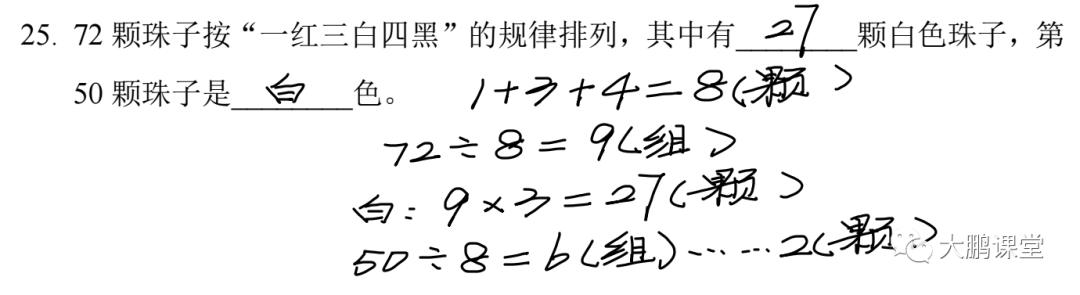 25. 72 颗珠子按“一红三白四黑”的规律排列，其中有 27 颗白色珠子，第
50 颗珠子是 白 色。 1+3+4=8(颗)
72÷8=9(组)
白：9×3=27(颗)
50÷8=6(组)……2(颗)
大鹏课堂